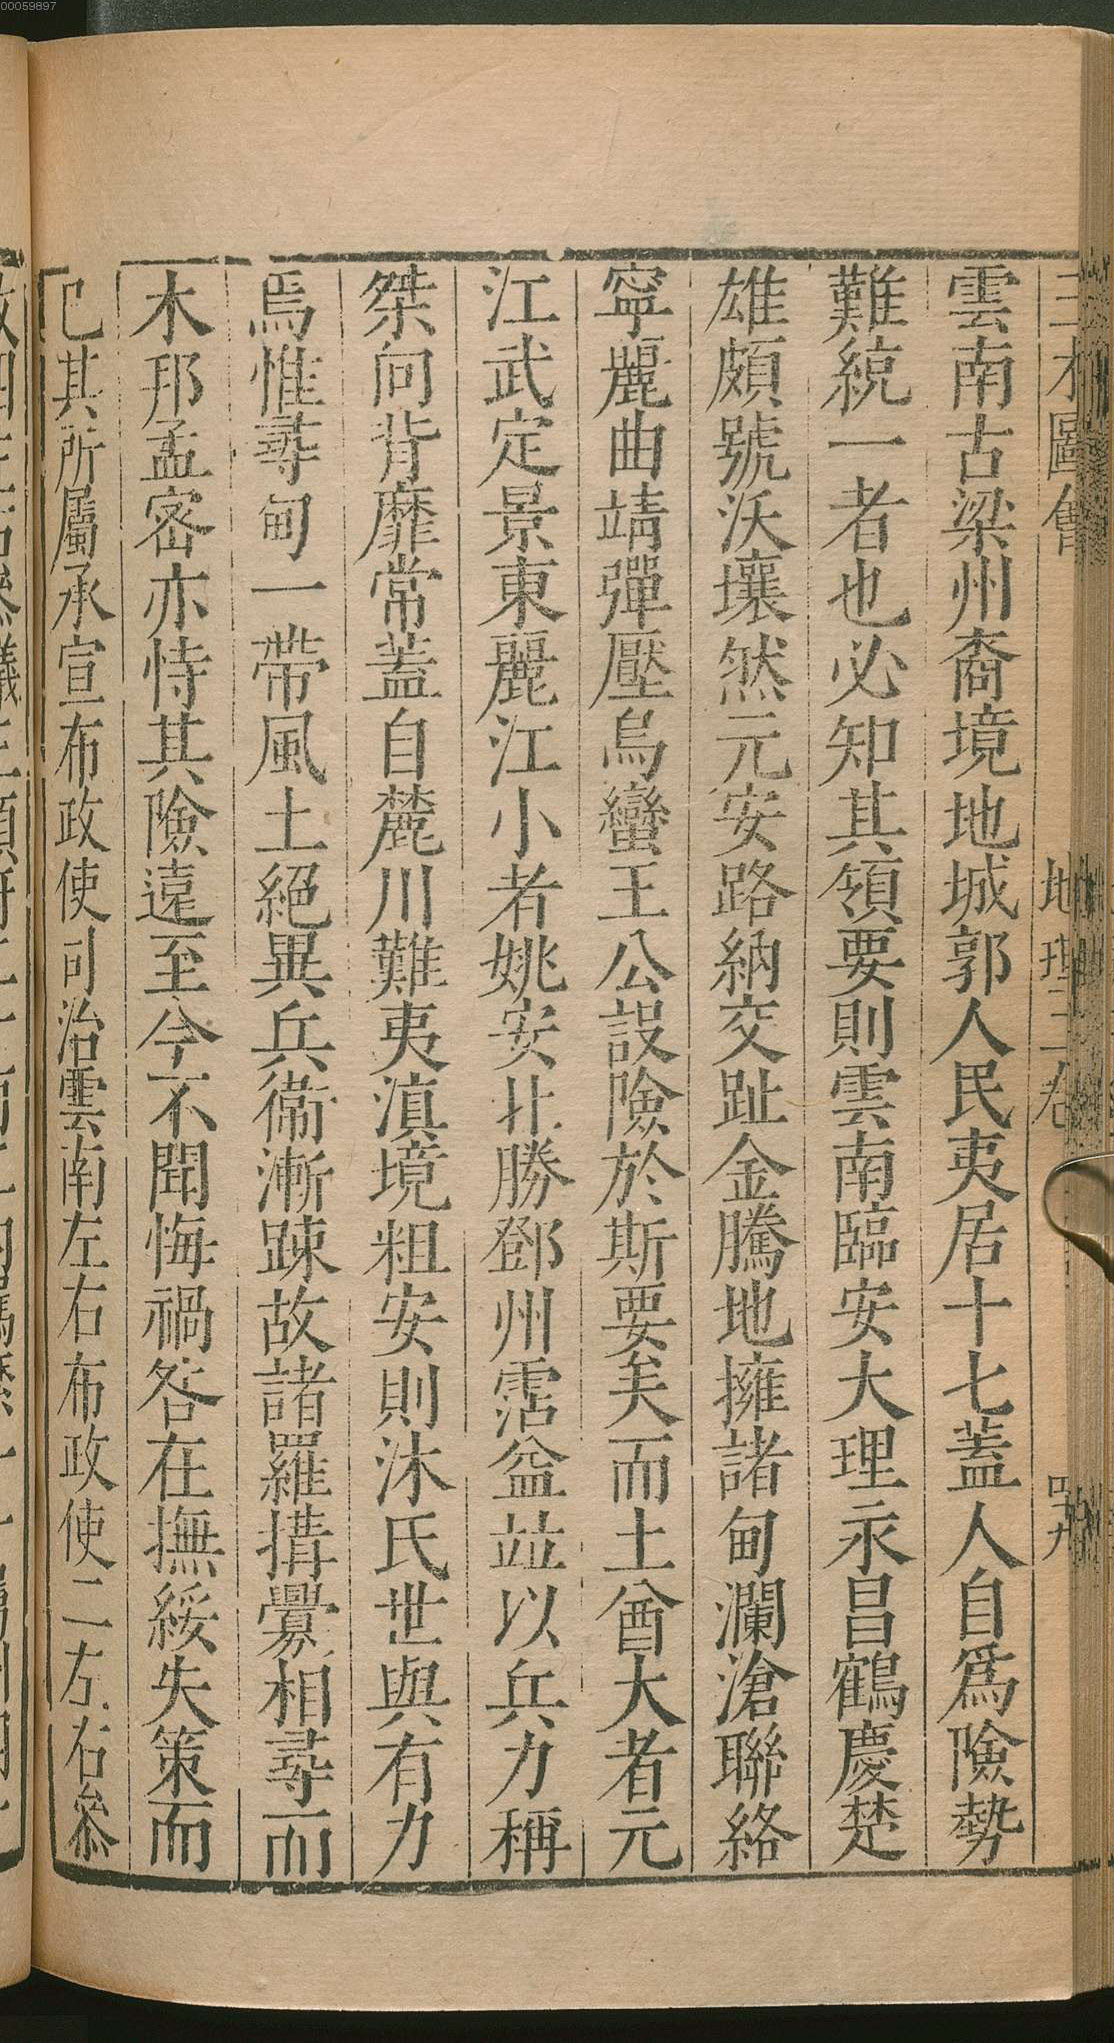 00059897
三才圖會 地理三卷 四九
雲南古梁州裔境地城郭人民夷居十七蓋人自爲險勢
難統一者也必知其領要則雲南臨安大理永昌鶴慶楚
雄頗號沃壤然元安路納交趾金騰地擁諸甸瀾滄聯絡
寧麗曲靖彈壓烏蠻王公設險於斯要矣而土酋大者元
江武定景東麗江小者姚安北勝鄧州霑益並以兵力稱
桀向背靡常蓋自麓川難夷滇境粗安則沐氏世與有力
焉惟尋甸一帶風土絕異兵衞漸踈故諸羅搆釁相尋而
木邦孟密亦恃其險遠至今不聞悔禍咎在撫綏失策而
已其所屬承宣布政使司治雲南左右布政使二左右叅